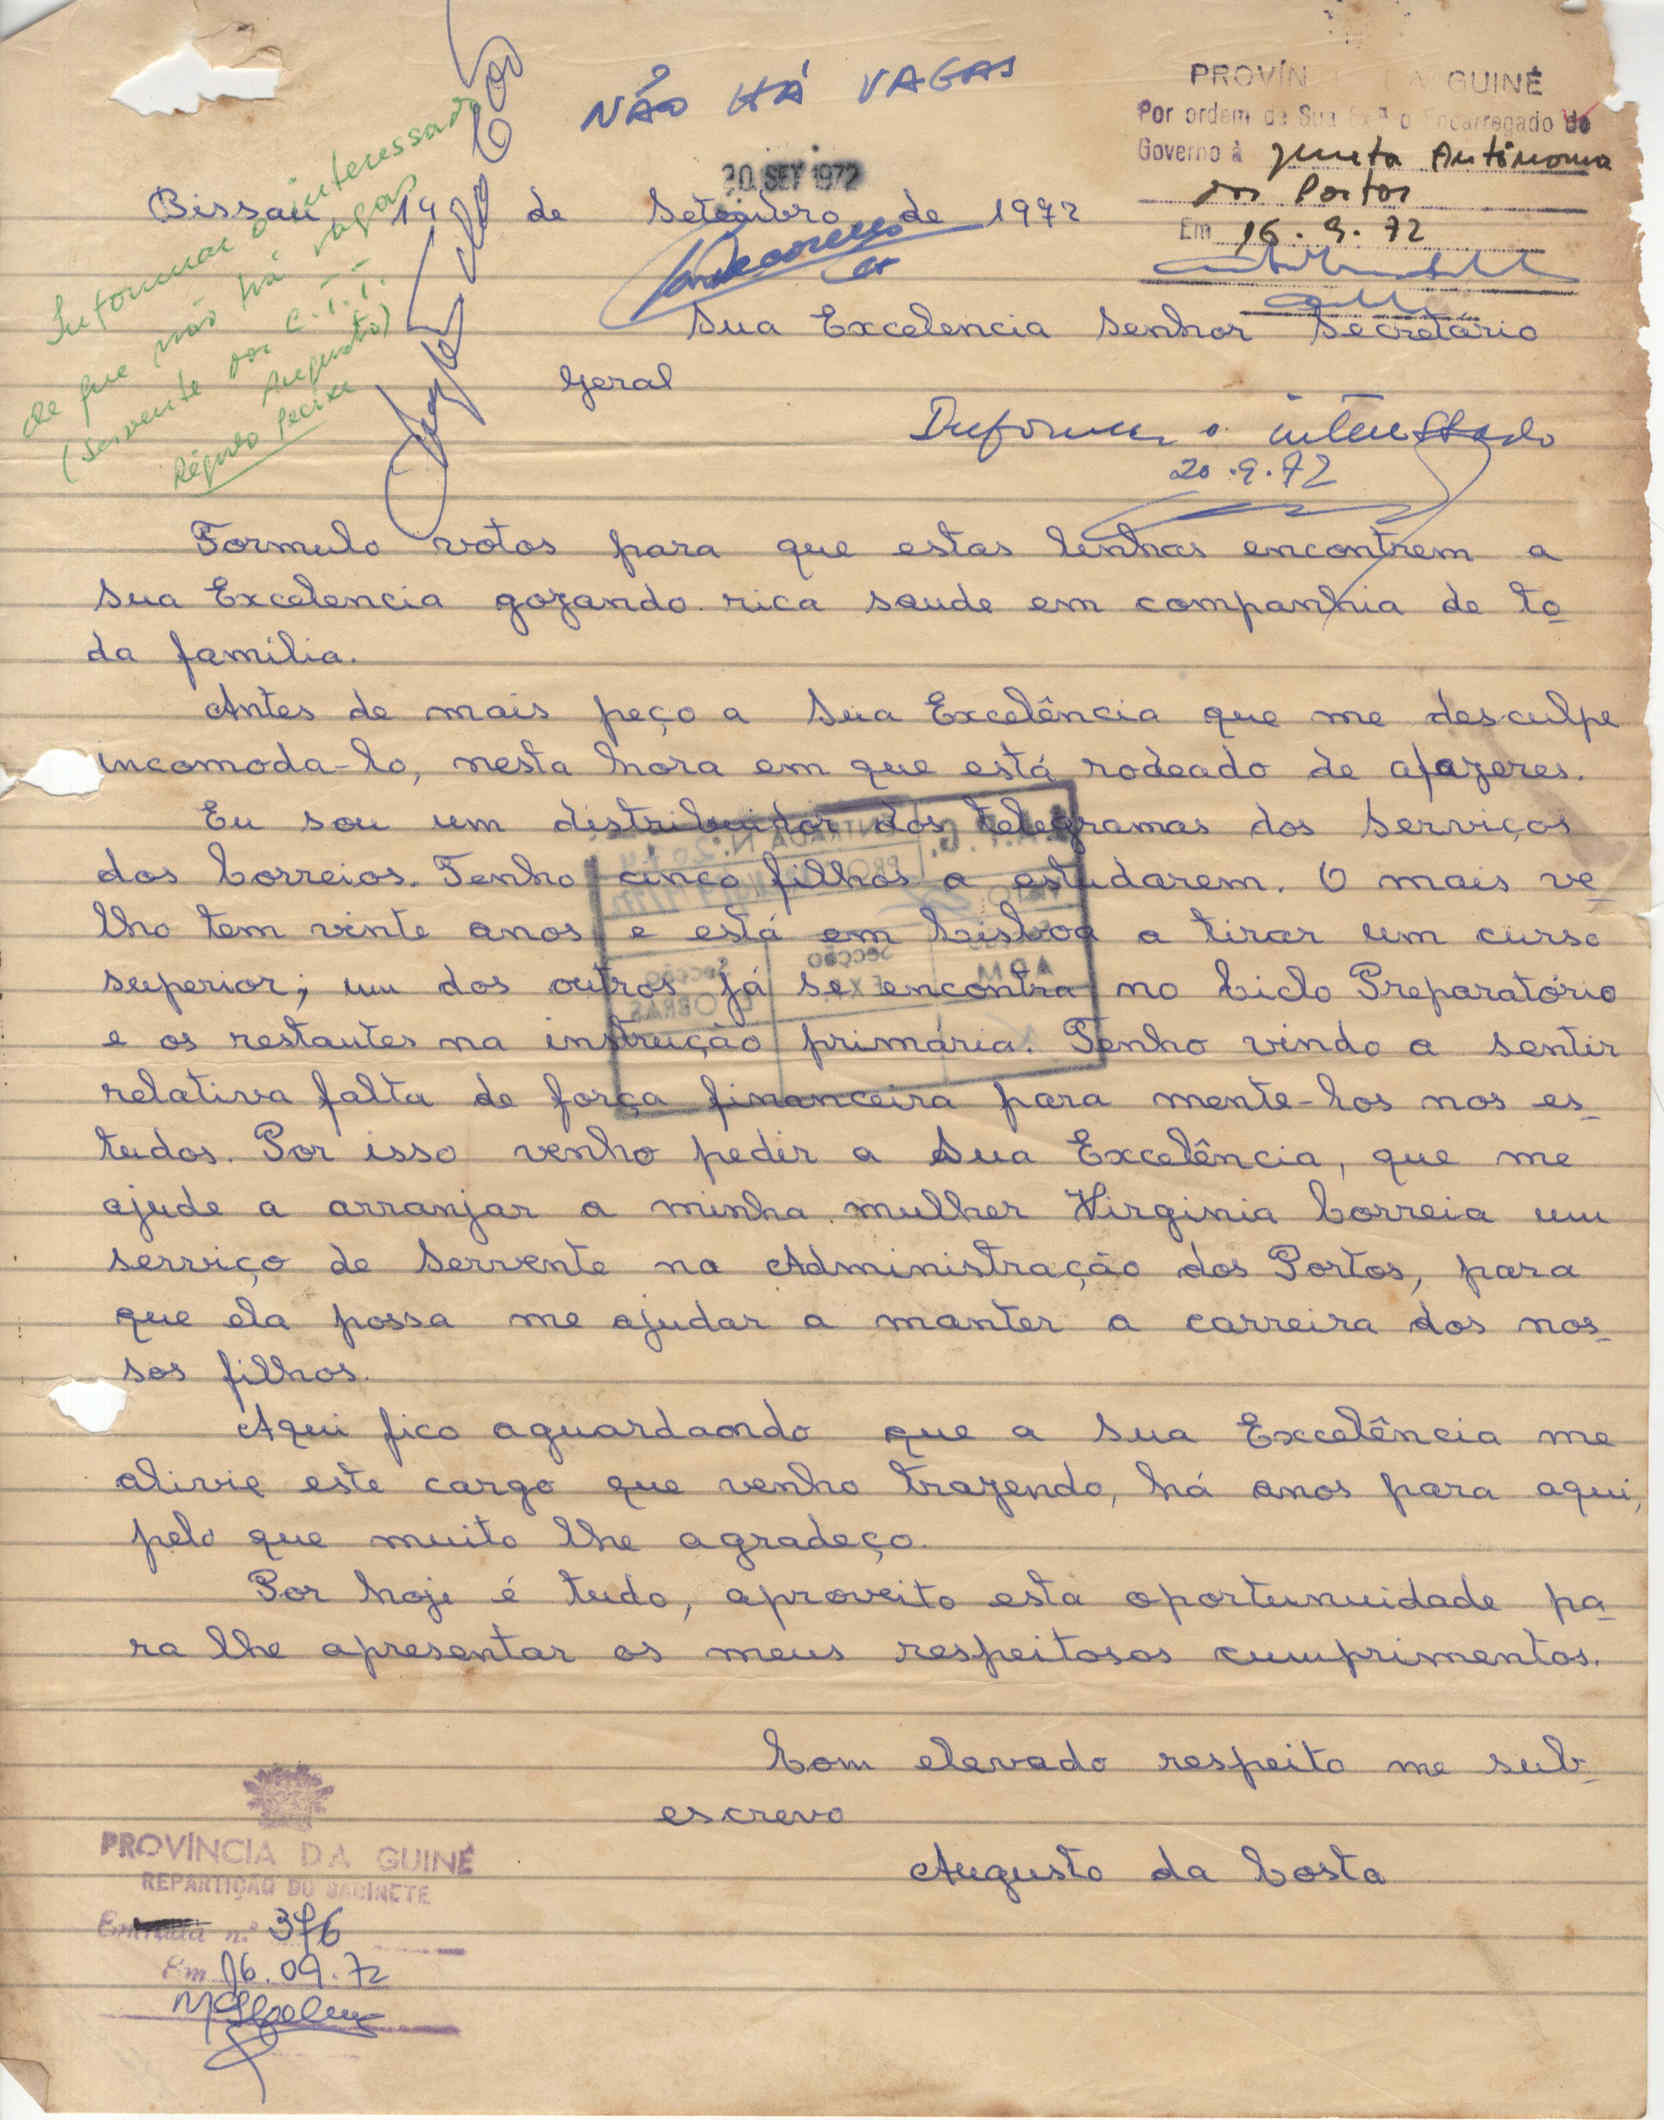 NÃO HÁ VAGAS
PROVÍN DA GUINÉ
Por ordem de Sua Exª o Encarregado do
Governo à Junta Autónoma
dos Portos
Em 16.9.72
20 SET 1972
Bissau, 14 de Setembro de 1972
Informar o interessado
de que não há vagas
(servente dos C.T.T.
Augusto)
Sua Excelencia Senhor Secretário
Geral
Informar o interessado
20.9.72
Formulo votos para que estas linhas encontrem a
Sua Excelencia gozando rica saude em companhia de to-
da família.
Antes de mais peço a Sua Excelência que me desculpe
incomoda-lo, nesta hora em que está rodeado de afazeres.
Eu sou um distribuidor dos telegramas dos Serviços
dos Correios. Tenho cinco filhos a estudarem. O mais ve-
lho tem vinte anos e está em Lisboa a tirar um curso
superior; um dos outros já se encontra no Ciclo Preparatório
e os restantes na instrução primária. Tenho vindo a sentir
relativa falta de força financeira para mente-los nos es-
tudos. Por isso venho pedir a Sua Excelência, que me
ajude a arranjar a minha mulher Virginia Correia um
serviço de Servente na Administração dos Portos, para
que ela possa me ajudar a manter a carreira dos nos-
sos filhos.
Aqui fico aguardaondo que a Sua Excelência me
alivie este cargo que venho trazendo, há anos para aqui,
pelo que muito lhe agradeço.
Por hoje é tudo, aproveito esta oportunuidade pa-
ra lhe apresentar os meus respeitosos cumprimentos.
Com elevado respeito me sub-
escrevo
Augusto da Costa
PROVÍNCIA DA GUINÉ
REPARTIÇÃO DO GABINETE
Entrada n.º 376
Em 16.09.72